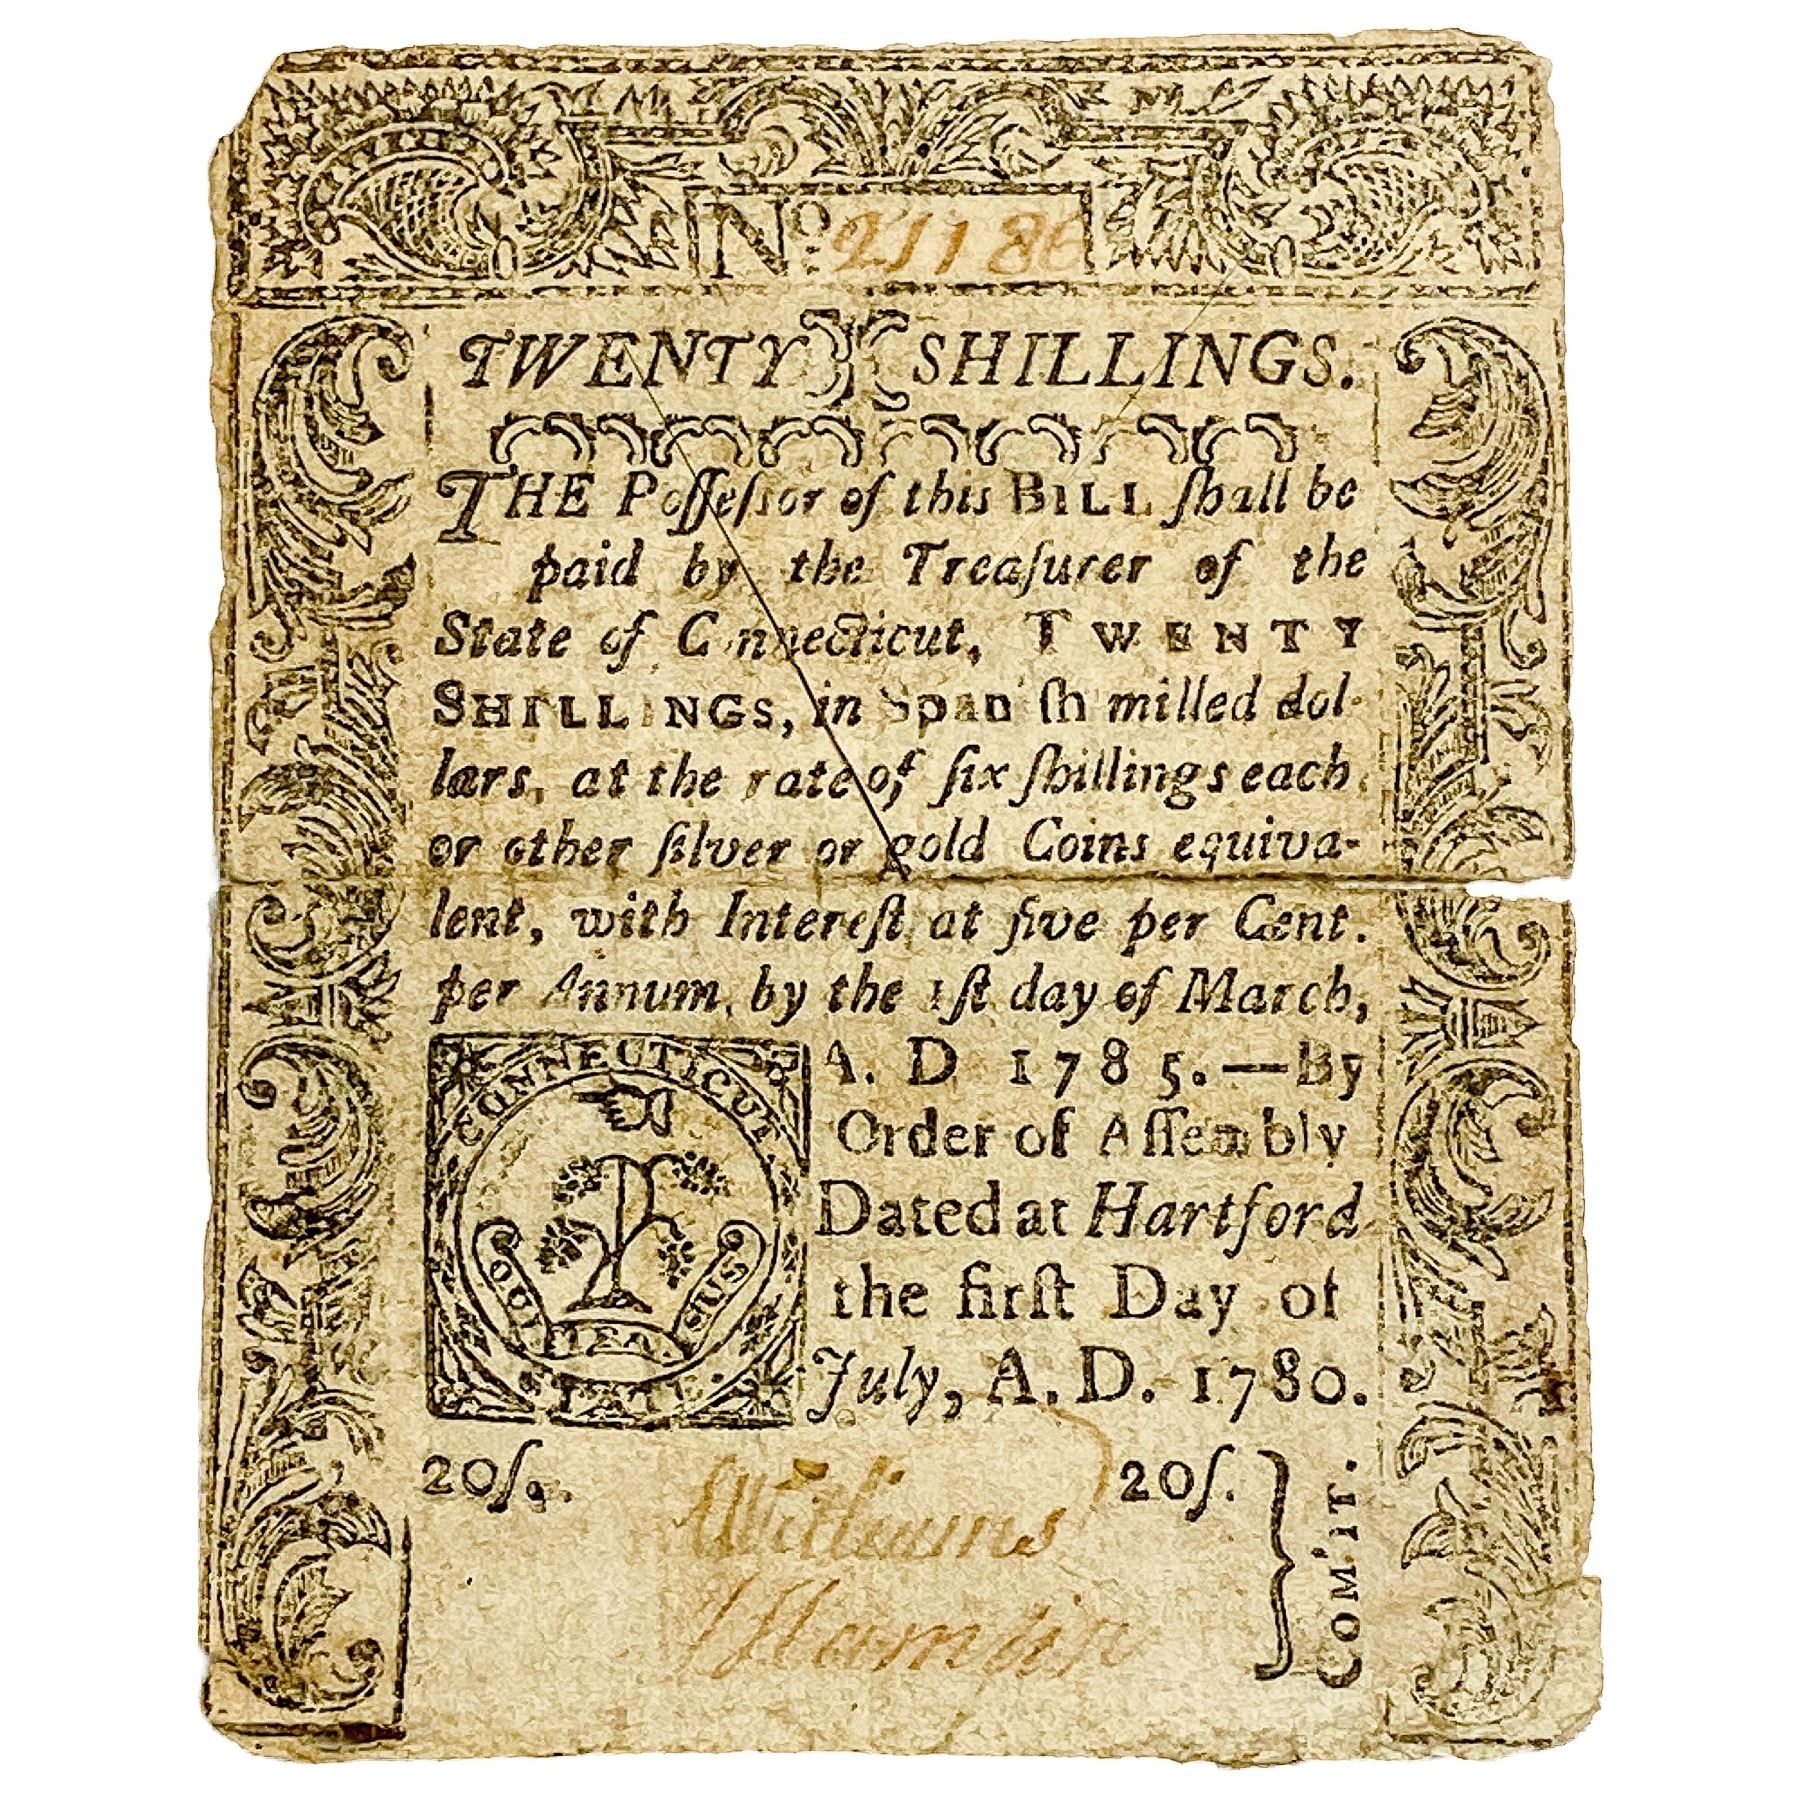 No. 21186
TWENTY SHILLINGS.
THE Poſſeſsor of this BILL ſhall be
paid by the Treaſurer of the
State of Connecticut, TWENTY
SHILLINGS, in Spaniſh milled dol-
lars, at the rate of ſix ſhillings each.
or other ſilver or gold Coins equiva-
lent, with Intereſt at five per Cent.
per Annum, by the 1ſt day of March,
A. D 1785.—By
Order of Aſſembly
Dated at Hartford
the firſt Day of
July, A. D. 1780.
CONNECTICUT
SUS
20ſ.
20ſ.
Williams
COM'IT.